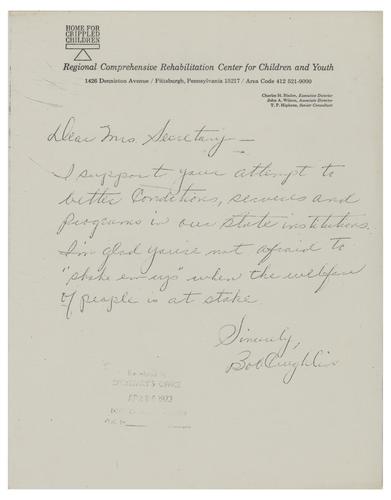 HOME FOR
CRIPPLED
CHILDREN
Regional Comprehensive Rehabilitation Center for Children and Youth
1426 Denniston Avenue / Pittsburgh, Pennsylvania 15217 / Area Code 412 521-9000
Charles H. Bisdee, Executive Director
John A. Wilson, Associate Director
T. P. Hipkens, Senior Consultant
Dear Mrs. Secretary —
I support your attempt to
better conditions, services and
programs in our state institutions.
I'm glad you're not afraid to
"shake em up" when the welfare
of people is at stake.
Sincerely,
Bob
SECRETARY'S OFFICE